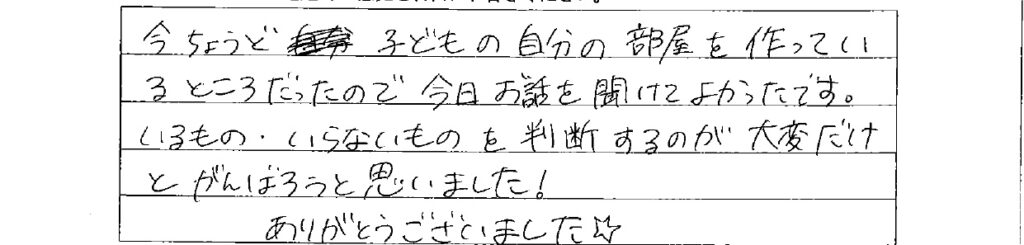 今ちょうど 子どもの自分の部屋を作ってい
るところだったので今日お話を聞けてよかったです。
いるもの・いらないものを判断するのが大変だけ
どがんばろうと思いました!
ありがとうございました☆